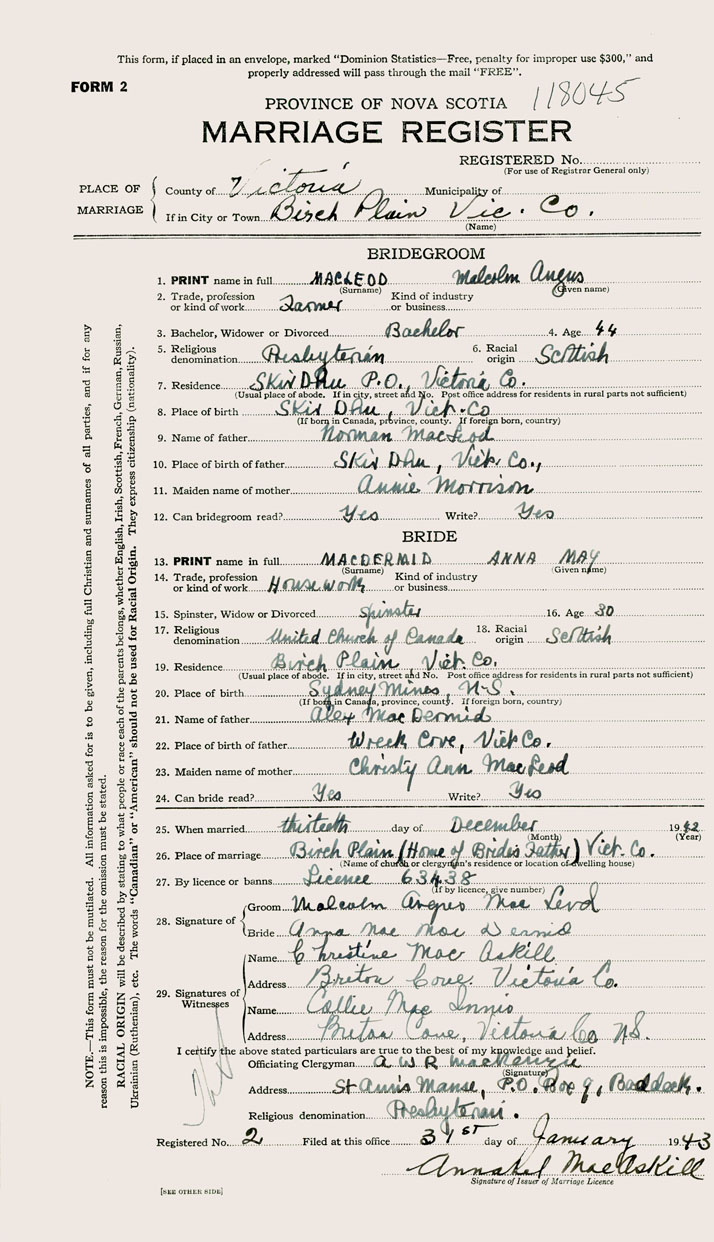 This form, if placed in an envelope, marked "Dominion Statistics—Free, penalty for improper use $300," and
properly addressed will pass through the mail "FREE".
FORM 2
PROVINCE OF NOVA SCOTIA 118045
MARRIAGE REGISTER
REGISTERED No.
(For use of Registrar General only)
PLACE OF MARRIAGE
County of Victoria Municipality of
If in City or Town Birch Plain Vic. Co.
(Name)
BRIDEGROOM
1. PRINT name in full MACLEOD Malcolm Angus
(Surname) (Given name)
2. Trade, profession or kind of work Farmer Kind of industry or business
3. Bachelor, Widower or Divorced Bachelor 4. Age 44
5. Religious denomination Presbyterian 6. Racial origin Scottish
7. Residence Skir Dhu P.O., Victoria Co.
(Usual place of abode. If in city, street and No. Post office address for residents in rural parts not sufficient)
8. Place of birth Skir Dhu, Vict. Co
(If born in Canada, province, county. If foreign born, country)
9. Name of father Norman MacLeod
10. Place of birth of father Skir Dhu, Vict. Co.,
11. Maiden name of mother Annie Morrison
12. Can bridegroom read? Yes Write? Yes
BRIDE
13. PRINT name in full MACDERMID ANNA MAY
(Surname) (Given name)
14. Trade, profession or kind of work Housework Kind of industry or business
15. Spinster, Widow or Divorced Spinster 16. Age 30
17. Religious denomination United Church of Canada 18. Racial origin Scottish
19. Residence Birch Plain, Vict. Co.
(Usual place of abode. If in city, street and No. Post office address for residents in rural parts not sufficient)
20. Place of birth Sydney Mines, N.S.
(If born in Canada, province, county. If foreign born, country)
21. Name of father Alex MacDermid
22. Place of birth of father Wreck Cove, Vict Co.
23. Maiden name of mother Christy Ann MacLeod
24. Can bride read? Yes Write? Yes
25. When married thirteeth day of December 1942
(Month) (Year)
26. Place of marriage Birch Plain (Home of Brides Father) Vict. Co.
(Name of church or clergyman's residence or location of dwelling house)
27. By licence or banns Licence 63438
(If by licence, give number)
28. Signature of
Groom Malcolm Angus Mac Leod
Bride Anna Mae Mac Dermid
29. Signatures of Witnesses
Name Christine Mac Askill
Address Briton Cove Victoria Co.
Name Collie Mac Innis
Address Breton Cove, Victoria Co N.S.
I certify the above stated particulars are true to the best of my knowledge and belief.
Officiating Clergyman A W R MacKenzie
(Signature)
Address St Ann's Manse, P.O. Box 9, Baddeck.
Religious denomination Presbyterian.
Registered No. 2 Filed at this office 31st day of January 1943
Annabel MacAskill
Signature of Issuer of Marriage Licence
[SEE OTHER SIDE]
NOTE.—This form must not be mutilated. All information asked for is to be given, including full Christian and surnames of all parties, and if for any
reason this is impossible, the reason for the omission must be stated.
RACIAL ORIGIN will be described by stating to what people or race each of the parents belongs, whether English, Irish, Scottish, French, German, Russian,
Ukrainian (Ruthenian), etc. The words "Canadian" or "American" should not be used for Racial Origin. They express citizenship (nationality).